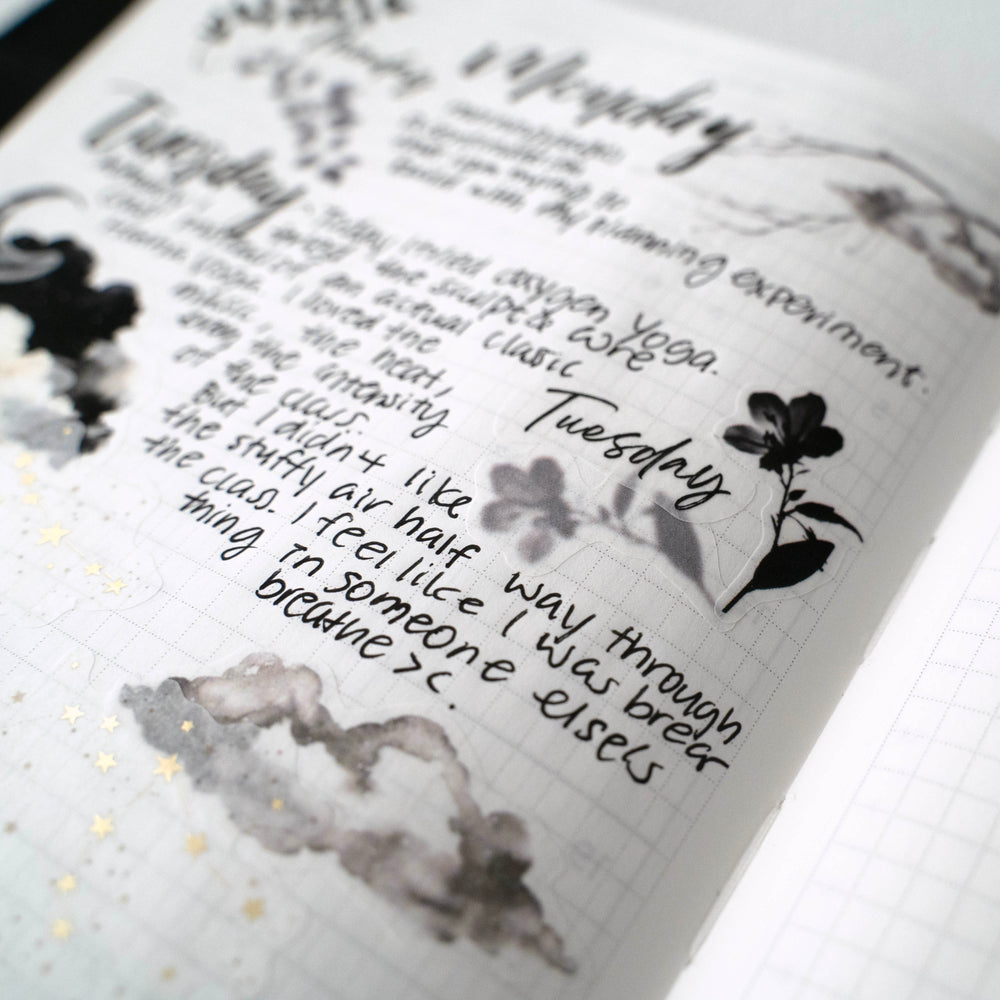 Monday
trying to
with my planning experiment.
Tuesday
Today I tried oxygen yoga.
the sculpt & core
instead of an actual classic
yoga. I loved the
music, the heat,
the intensity
of the class.
But I didn't like
the stuffy air half way through
the class. I feel like I was brear
thing in someone elses
breathe >c.
Tuesday